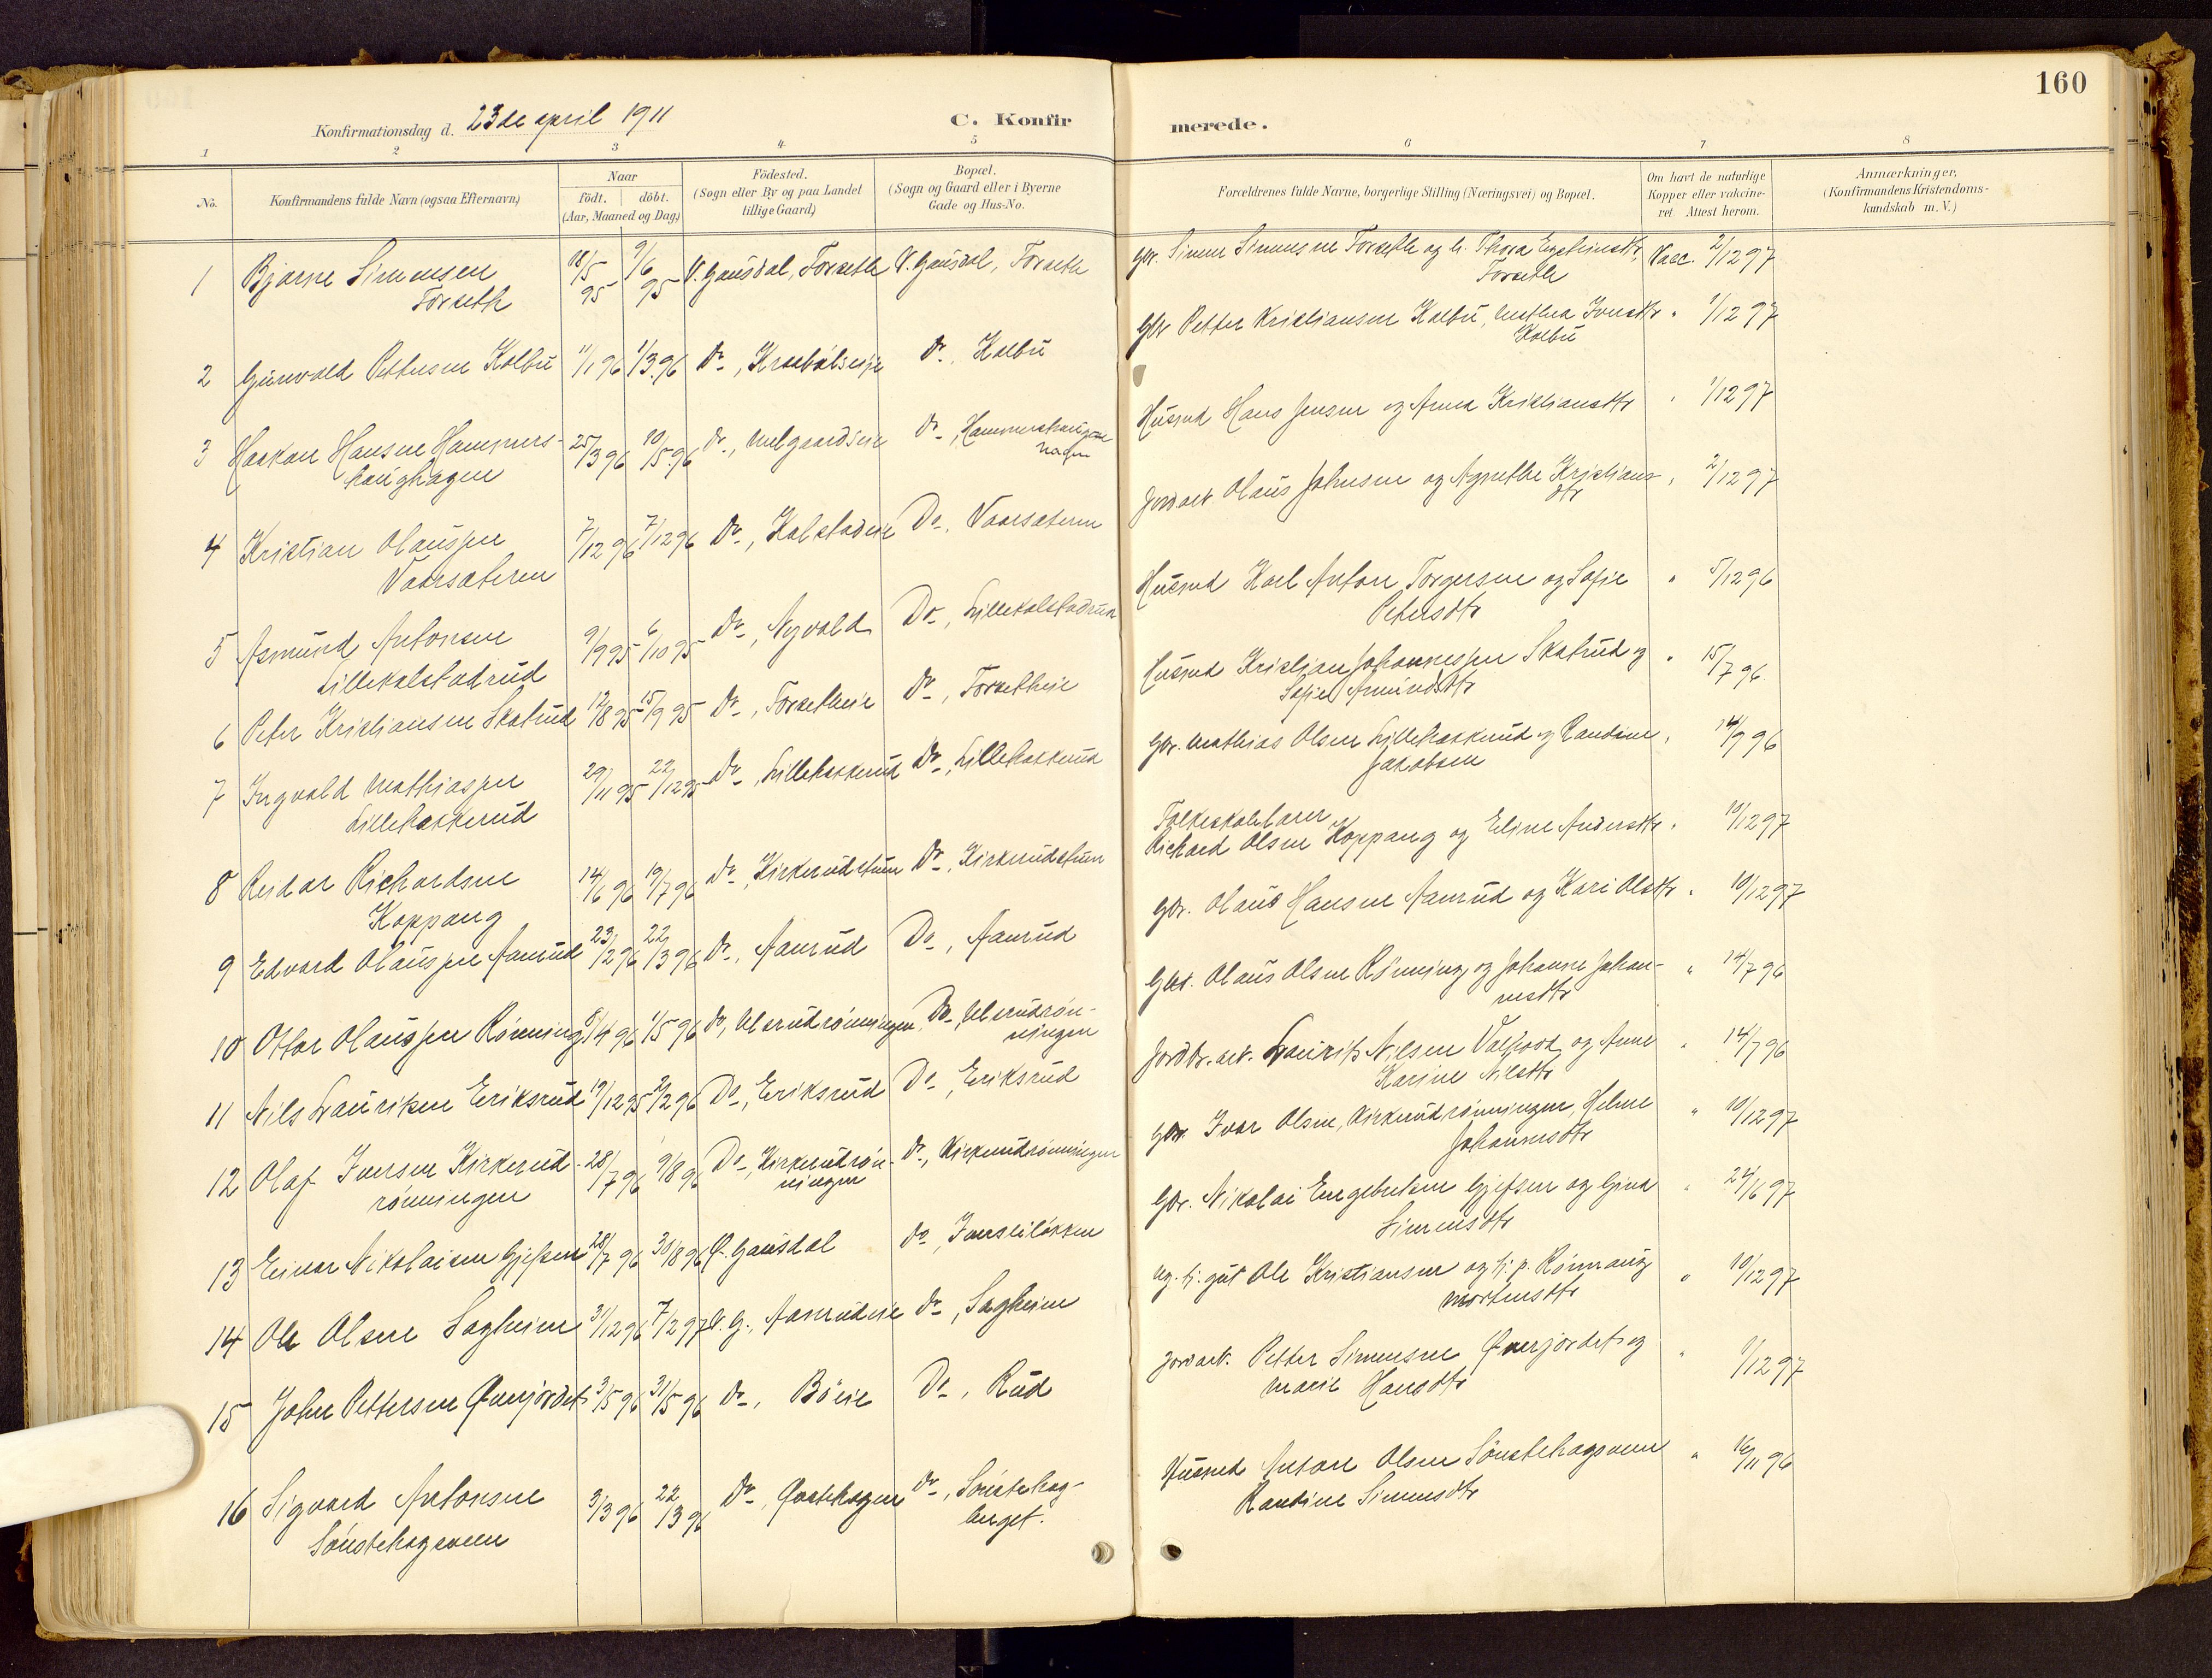 160
Konfirmationsdag d. 23de april 1911
C. Konfirmerede.
1 2 3 4 5 6 7 8
No.
Konfirmandens fulde Navn (ogsaa Efternavn)
Naar
födt. döbt.
(Aar, Maaned og Dag.)
Födested.
(Sogn eller By og paa Landet
tillige Gaard)
Bopæl.
(Sogn og Gaard eller i Byerne
Gade og Hus-No.
Forældrenes fulde Navne, borgerlige Stilling (Næringsvei) og Bopæl.
Om havt de naturlige
Kopper eller vakcine-
ret Attest herom.
Anmærkninger.
(Konfirmandens Kristendoms-
kundskab m.V.)
1 Bjarne Simensen 18/5 95 9/6 95 V. Gausdal, Forseth V. Gausdal, Forseth Gbr. Simen Simensen Forseth og h. Thora Vacc. 2/12 97
Forseth Forseth
2 Gunvald Pettersen Kolbu 11/1 96 1/3 96 Do, Do, Kolbu Gbr Petter Kristiansen Kolbu, Mathea Iversdtr " 1/12 97
Kolbu
3 Haakon Hansen Hammers- 25/3 96 10/5 96 Do, Do, Husmd Hans Jensen og Anna Kristiansdtr " 1/12 97
haughagen hagen
4 Kristian Olaussen 7/12 96 7/12 96 Do, Kalstadeie Do, Vaarsæteren Jordarb Olaus Johnsen og Agnethe Kristians- " 2/12 97
Vaarsæteren dtr
5 Asmund Antonsen 9/9 95 6/10 95 Do, Nyvold Do, Lillekalstadrud Husmd Karl Anton Torgersen og Sofie " 5/12 96
Lillekalstadrud Petersdtr
6 Peter Kristiansen Skatrud 12/8 95 15/9 95 Do, Forsetheie Do, Forsetheie Husmd Kristian Johannessen Skatrud og " 15/7 96
Sofie Amundsdtr
7 Ingvald Mathiassen 29/11 95 22/12 95 Do, Lillehakkerud Do, Lillehakkerud Gbr. Mathias Olsen Lillehakkerud og Randine " 14/9 96
Lillehakkerud Jakobsen
8 Reidar Richardsen 14/6 96 19/7 96 Do, Kirkerudstuen Do, Kirkerudstuen Folkeskolelærer
Koppang Richard Olsen Koppang og Eline Andersdtr. " 10/12 97
9 Edvard Olaussen Aamrud 23/2 96 22/3 96 Do, Aamrud Do, Aamrud Gbr. Olaus Hansen Aamrud og Kari Olsdtr " 10/12 97
10 Ottar Olaussen Rønning 8/4 96 1/5 96 Do, Ulsrudrønningen Do, Ulsrudrøn- Gbr. Olaus Olsen Rønning og Johanne Johan- " 14/7 96
ningen nesdtr
11 Nils Lauritsen Eriksrud 19/12 95 2/2 96 Do, Eriksrud Do, Eriksrud Jordbr.arb. Laurits Nilsen og Anne " 14/7 96
Karine Nilsdtr
12 Olaf Iversen Kirkerud- 28/7 96 9/8 96 Do, Kirkerudrøn- Do, Kirkerudrønningen Gbr. Ivar Olsen, Kirkerudrønningen, Helene " 10/12 97
rønningen ningen Johannesdtr
13 Einar Nikolaisen Gjefsen 28/7 96 30/8 96 Ø. Gausdal Do, Iversliløkken Gbr. Nikolai Engebretsen Gjefsen og Gina " 24/6 97
Simensdtr
14 Ole Olsen Sagheim 31/12 96 7/2 97 V. G., Aamrudeie Do, Sagheim ug. tj. gut Ole Kristiansen og tj. p. Rønnaug " 10/12 97
Mortensdtr
15 John Pettersen Øverjordet 3/5 96 31/5 96 Do, Bøeie Do, Rud Jordarb. Petter Simensen Øverjordet og " 1/12 97
Marie Hansdtr
16 Sigvard Antonsen 3/3 96 22/3 96 Do, Do, Sønstehag- Husmd Anton Olsen Sønstehagsveen " 16/11 96
Sønstehagsveen Randine Simensdtr